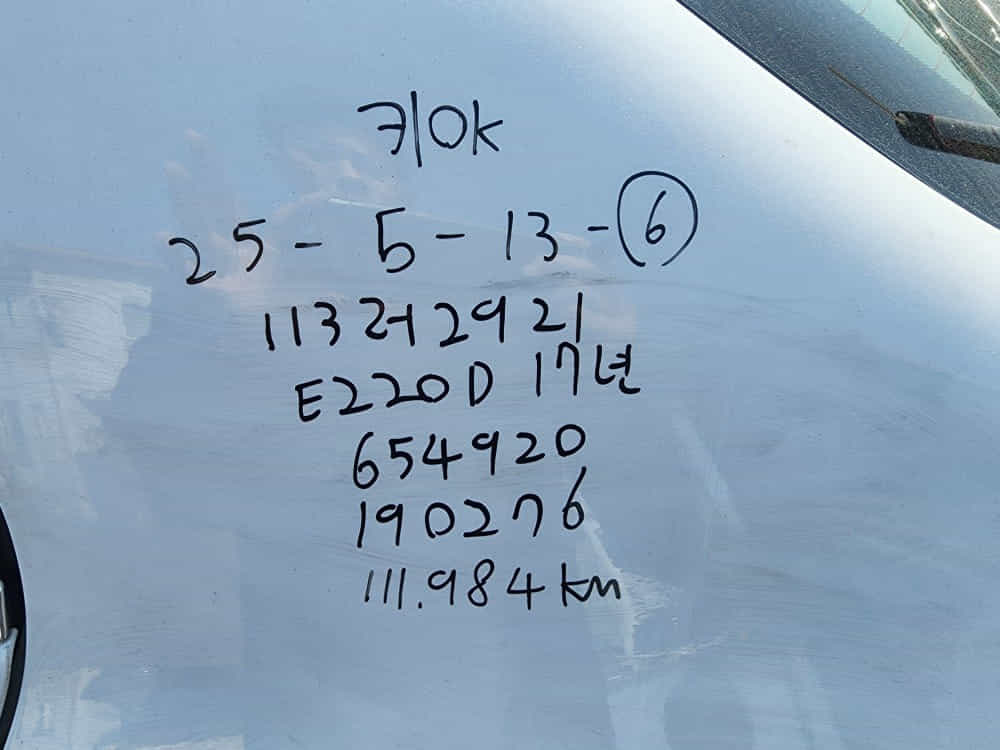 키ok
25-5-13-⑥
113러2921
E220D 17년
654920
190276
111.984km